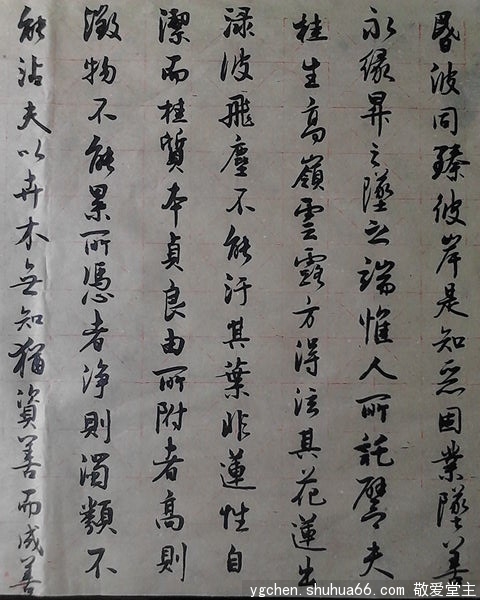 昏波同臻彼岸是知惡因業墜善
以緣昇々墜之端惟人所託譬夫
桂生高嶺雲露方得泫其花蓮出
淥波飛塵不能汙其葉非蓮性自
潔而桂質本貞良由所附者高則
微物不能累所憑者淨則濁類不
能沾夫以卉木無知猶資善而成善
ygchen.shuhua66.com 敬爱堂主